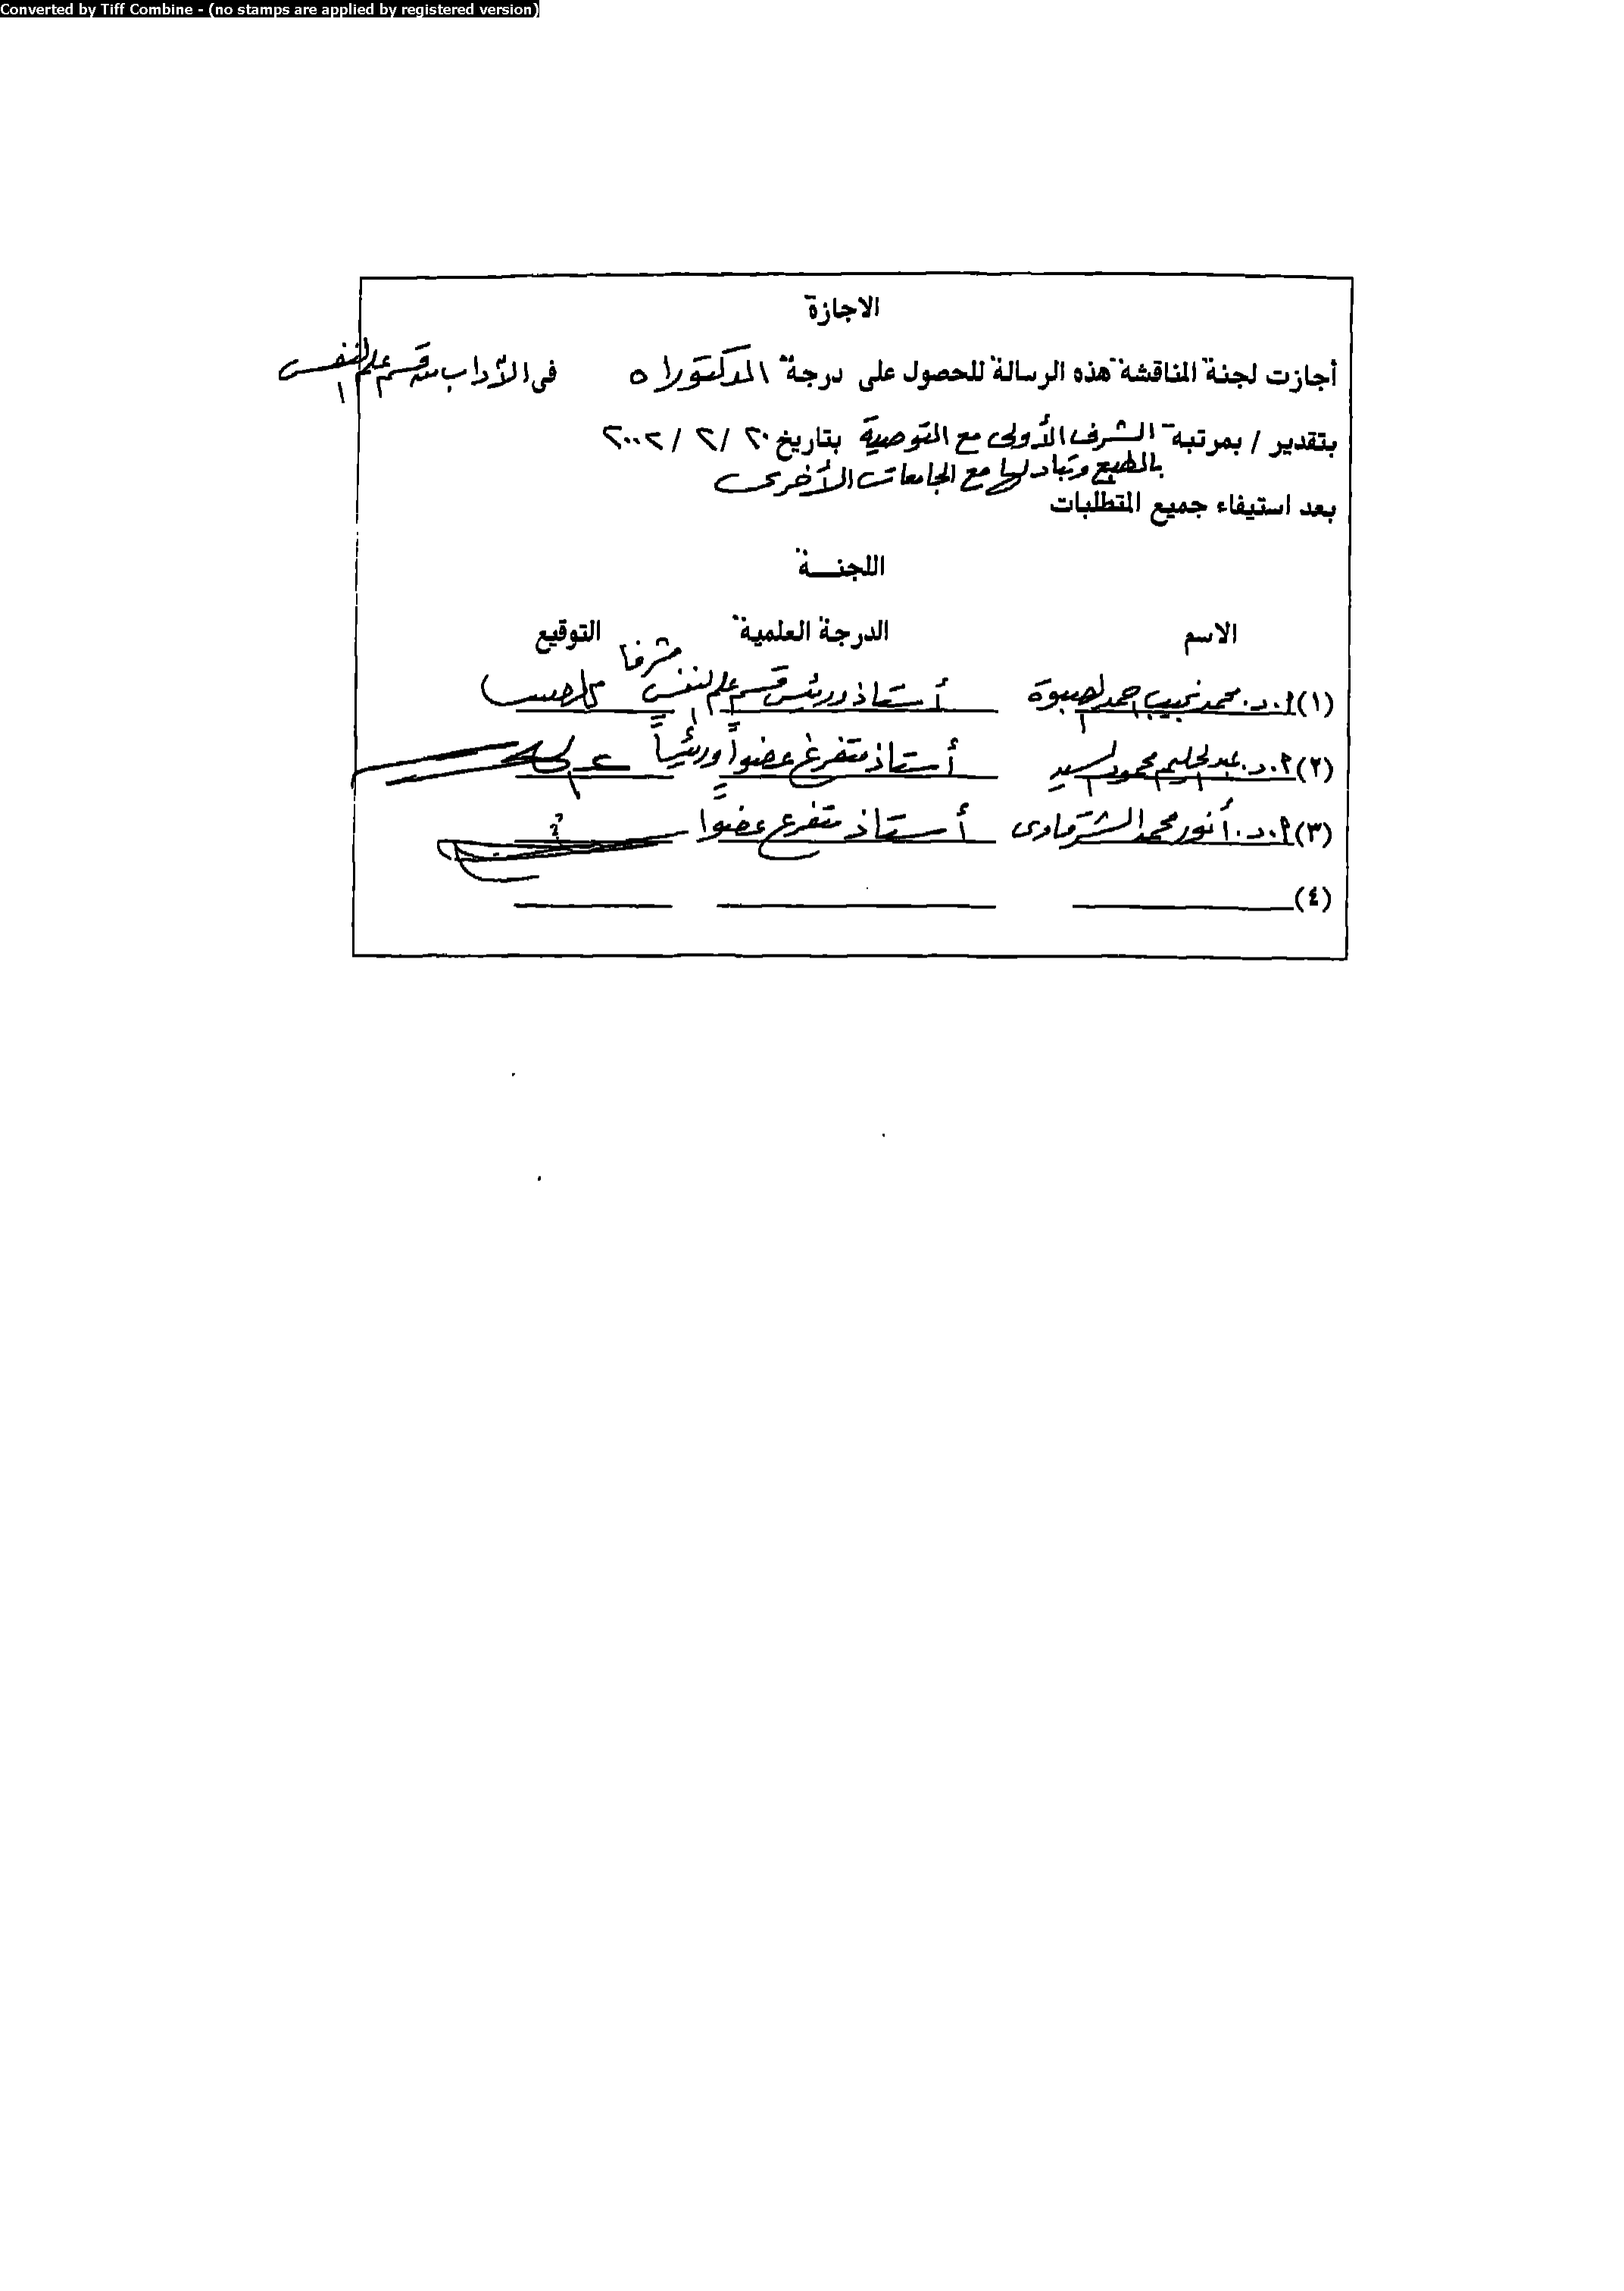 Converted by Tiff Combine - (no stamps are applied by registered version)
الاجازة
أجازت لجنة المناقشة هذه الرسالة للحصول على درجة الدكتوراه فى الآداب من قسم علم النفس
بتقدير / بمرتبة الشرف الأولى مع التوصية بتاريخ ٢٠ / ٢ / ٢٠٠٢
بالطبع وتبادلها مع الجامعات الأخرى
بعد استيفاء جميع المتطلبات
اللجنــة
الاسم الدرجة العلمية التوقيع
(١) أ.د. محمد نجيب أحمد الصبوة أستاذ ورئيس قسم علم النفس مشرفا
(٢) أ.د. عبد الحليم محمود السيد أستاذ متفرغ عضواً ورئيساً
(٣) أ.د. أنور محمد الشرقاوى أستاذ متفرغ عضواً
(٤)